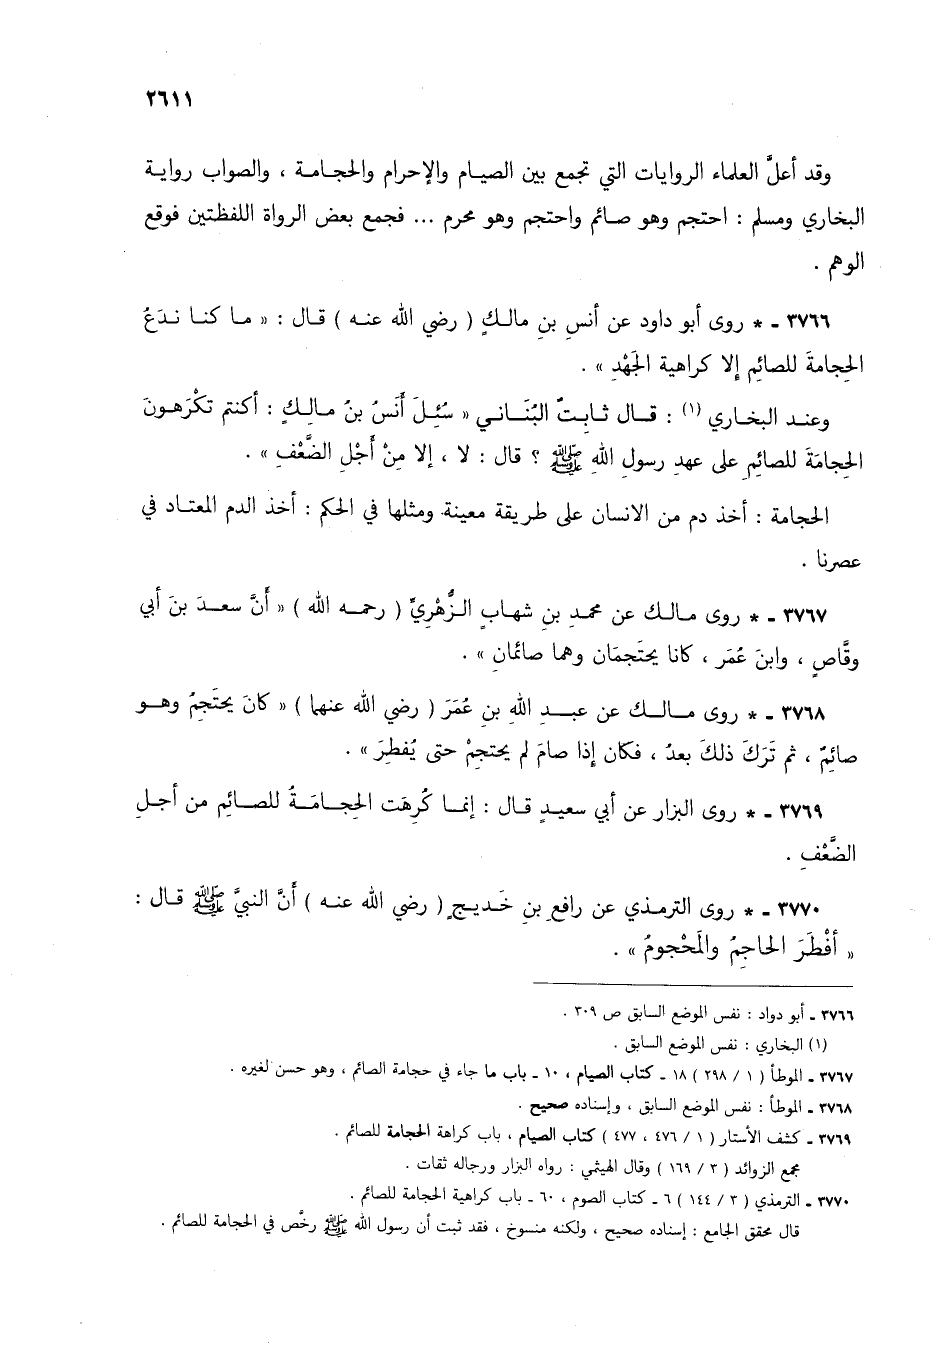 ٢٦١١
وقد أعلَّ العلماء الروايات التي تجمع بين الصيام والإحرام والحجامة ، والصواب رواية
البخاري ومسلم : احتجم وهو صائم واحتجم وهو محرم ... فجمع بعض الرواة اللفظتين فوقع
الوهم .
٣٧٦٦ ـ * روى أبو داود عن أنسِ بنِ مالكٍ ( رضي الله عنه ) قال : « ما كنا ندَعُ
الحِجامةَ للصائمِ إلا كراهية الجَهْدِ » .
وعند البخاري (١) : قال ثابتٌ البُنَاني « سُئِلَ أَنَسُ بنُ مالكٍ : أكنتم تكْرَهونَ
الحِجامَةَ للصائمِ على عهدِ رسولِ اللهِ ﷺ ؟ قال : لا ، إلا مِنْ أَجْلِ الضَّعْفِ » .
الحجامة : أخذ دم من الانسان على طريقة معينة ومثلها في الحكم : أخذ الدم المعتاد في
عصرنا .
٣٧٦٧ ـ * روى مالك عن محمدِ بنِ شهابٍ الزُّهْريِّ ( رحمه الله ) « أنَّ سعدَ بنَ أبي
وقَّاصٍ ، وابنَ عُمَر ، كانا يحتَجِمَان وهما صائمان » .
٣٧٦٨ ـ * روى مالك عن عبدِ اللهِ بنِ عُمَرَ ( رضي الله عنهما ) « كانَ يحتَجِمُ وهو
صائِمٌ ، ثم تَرَكَ ذلكَ بعدُ ، فكان إذا صامَ لم يحتجِمْ حتى يُفطِرَ » .
٣٧٦٩ ـ * روى البزار عن أبي سعيدٍ قال : إنما كُرِهَت الحِجامَةُ للصائِمِ من أجلِ
الضَّعْفِ .
٣٧٧٠ ـ * روى الترمذي عن رافعِ بنِ خَديجٍ ( رضي الله عنه ) أنَّ النبيَّ ﷺ قال :
« أفْطَرَ الحاجِمُ والمَحْجومُ » .
٣٧٦٦ ـ أبو دواد : نفس الموضع السابق ص ٣٠٩ .
(١) البخاري : نفس الموضع السابق .
٣٧٦٧ ـ الموطأ ( ١ / ٢٩٨ ) ١٨ ـ كتاب الصيام ، ١٠ ـ باب ما جاء في حجامة الصائم ، وهو حسن لغيره .
٣٧٦٨ ـ الموطأ : نفس الموضع السابق ، وإسناده صحيح .
٣٧٦٩ ـ كشف الأستار ( ١ / ٤٧٦ ، ٤٧٧ ) كتاب الصيام ، باب كراهة الحجامة للصائم .
مجمع الزوائد ( ٣ / ١٦٩ ) وقال الهيثمي : رواه البزار ورجاله ثقات .
٣٧٧٠ ـ الترمذي ( ٣ / ١٤٤ ) ٦ ـ كتاب الصوم ، ٦٠ ـ باب كراهية الحجامة للصائم .
قال محقق الجامع : إسناده صحيح ، ولكنه منسوخ ، فقد ثبت أن رسول الله ﷺ رخَّص في الحجامة للصائم .